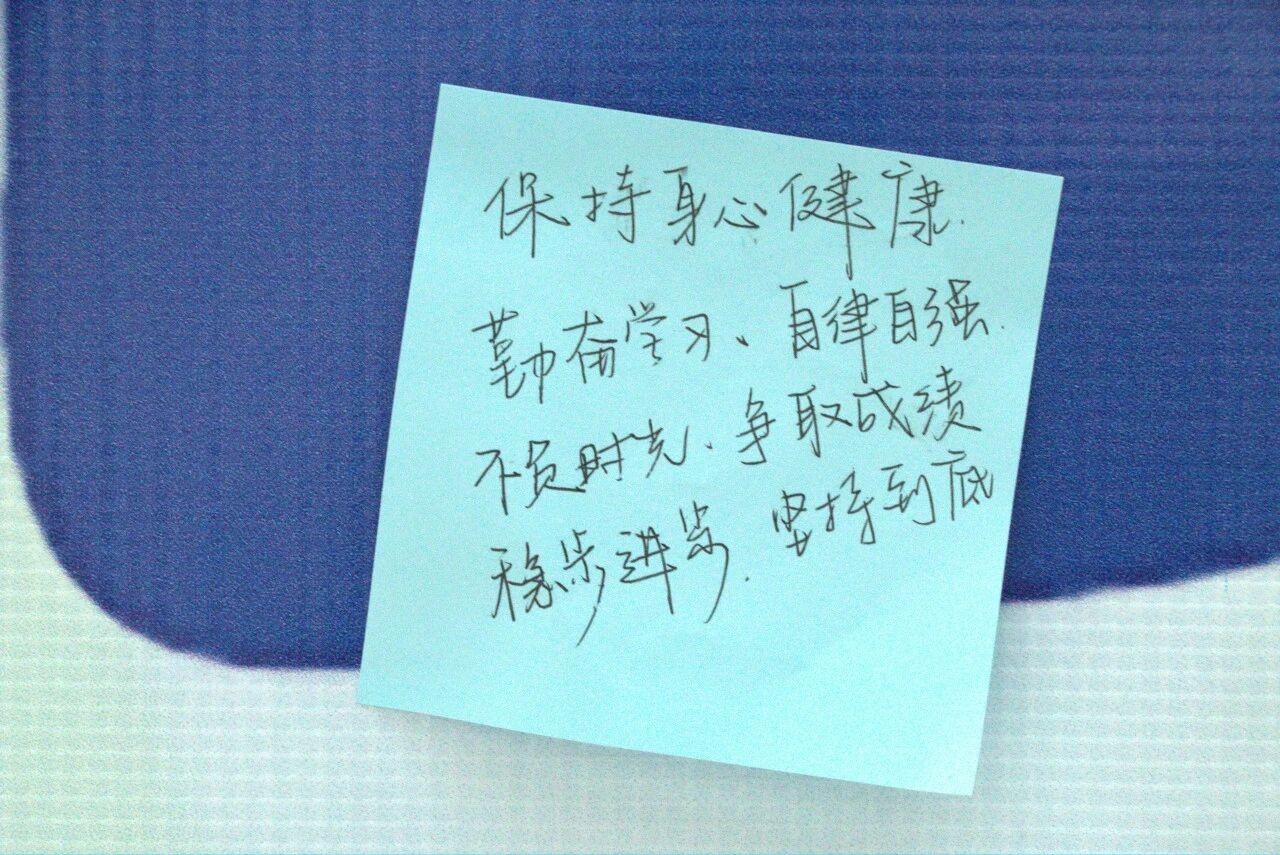 保持身心健康.
勤奋学习、自律自强.
不负时光.争取成绩
稳步进步.坚持到底